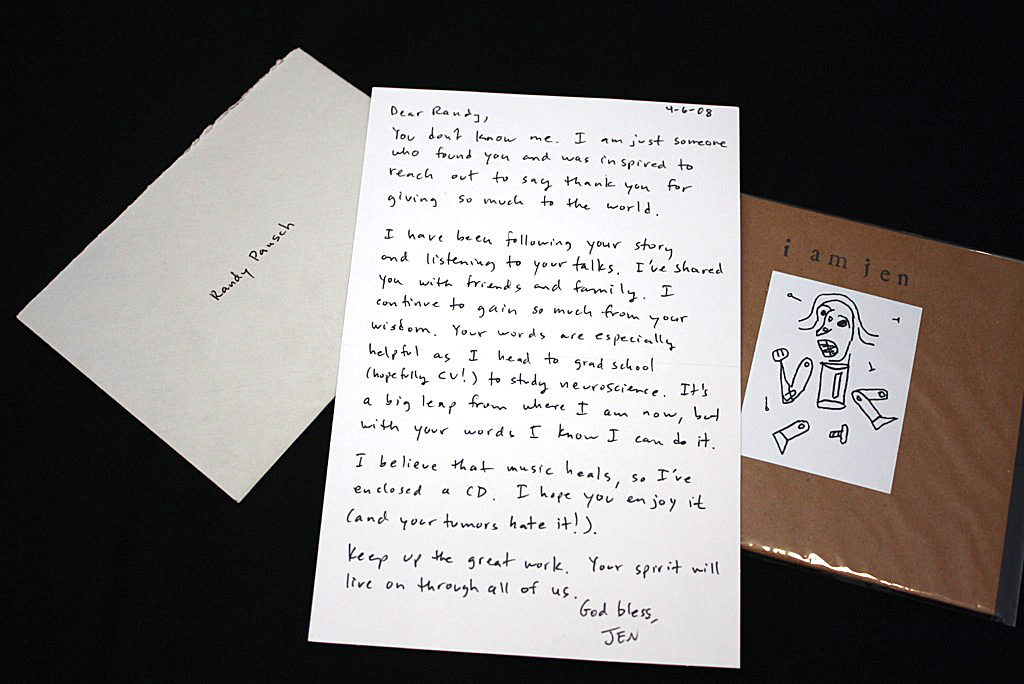 Randy Pausch
4-6-08
Dear Randy,
You don't know me. I am just someone
who found you and was inspired to
reach out to say thank you for
giving so much to the world.
I have been following your story
and listening to your talks. I've shared
you with friends and family. I
continue to gain so much from your
wisdom. Your words are especially
helpful as I head to grad school
(hopefully CU!) to study neuroscience. It's
a big leap from where I am now, but
with your words I know I can do it.
I believe that music heals, so I've
enclosed a CD. I hope you enjoy it
(and your tumors hate it!).
Keep up the great work. Your spirit will
live on through all of us.
God bless,
JEN
i am jen